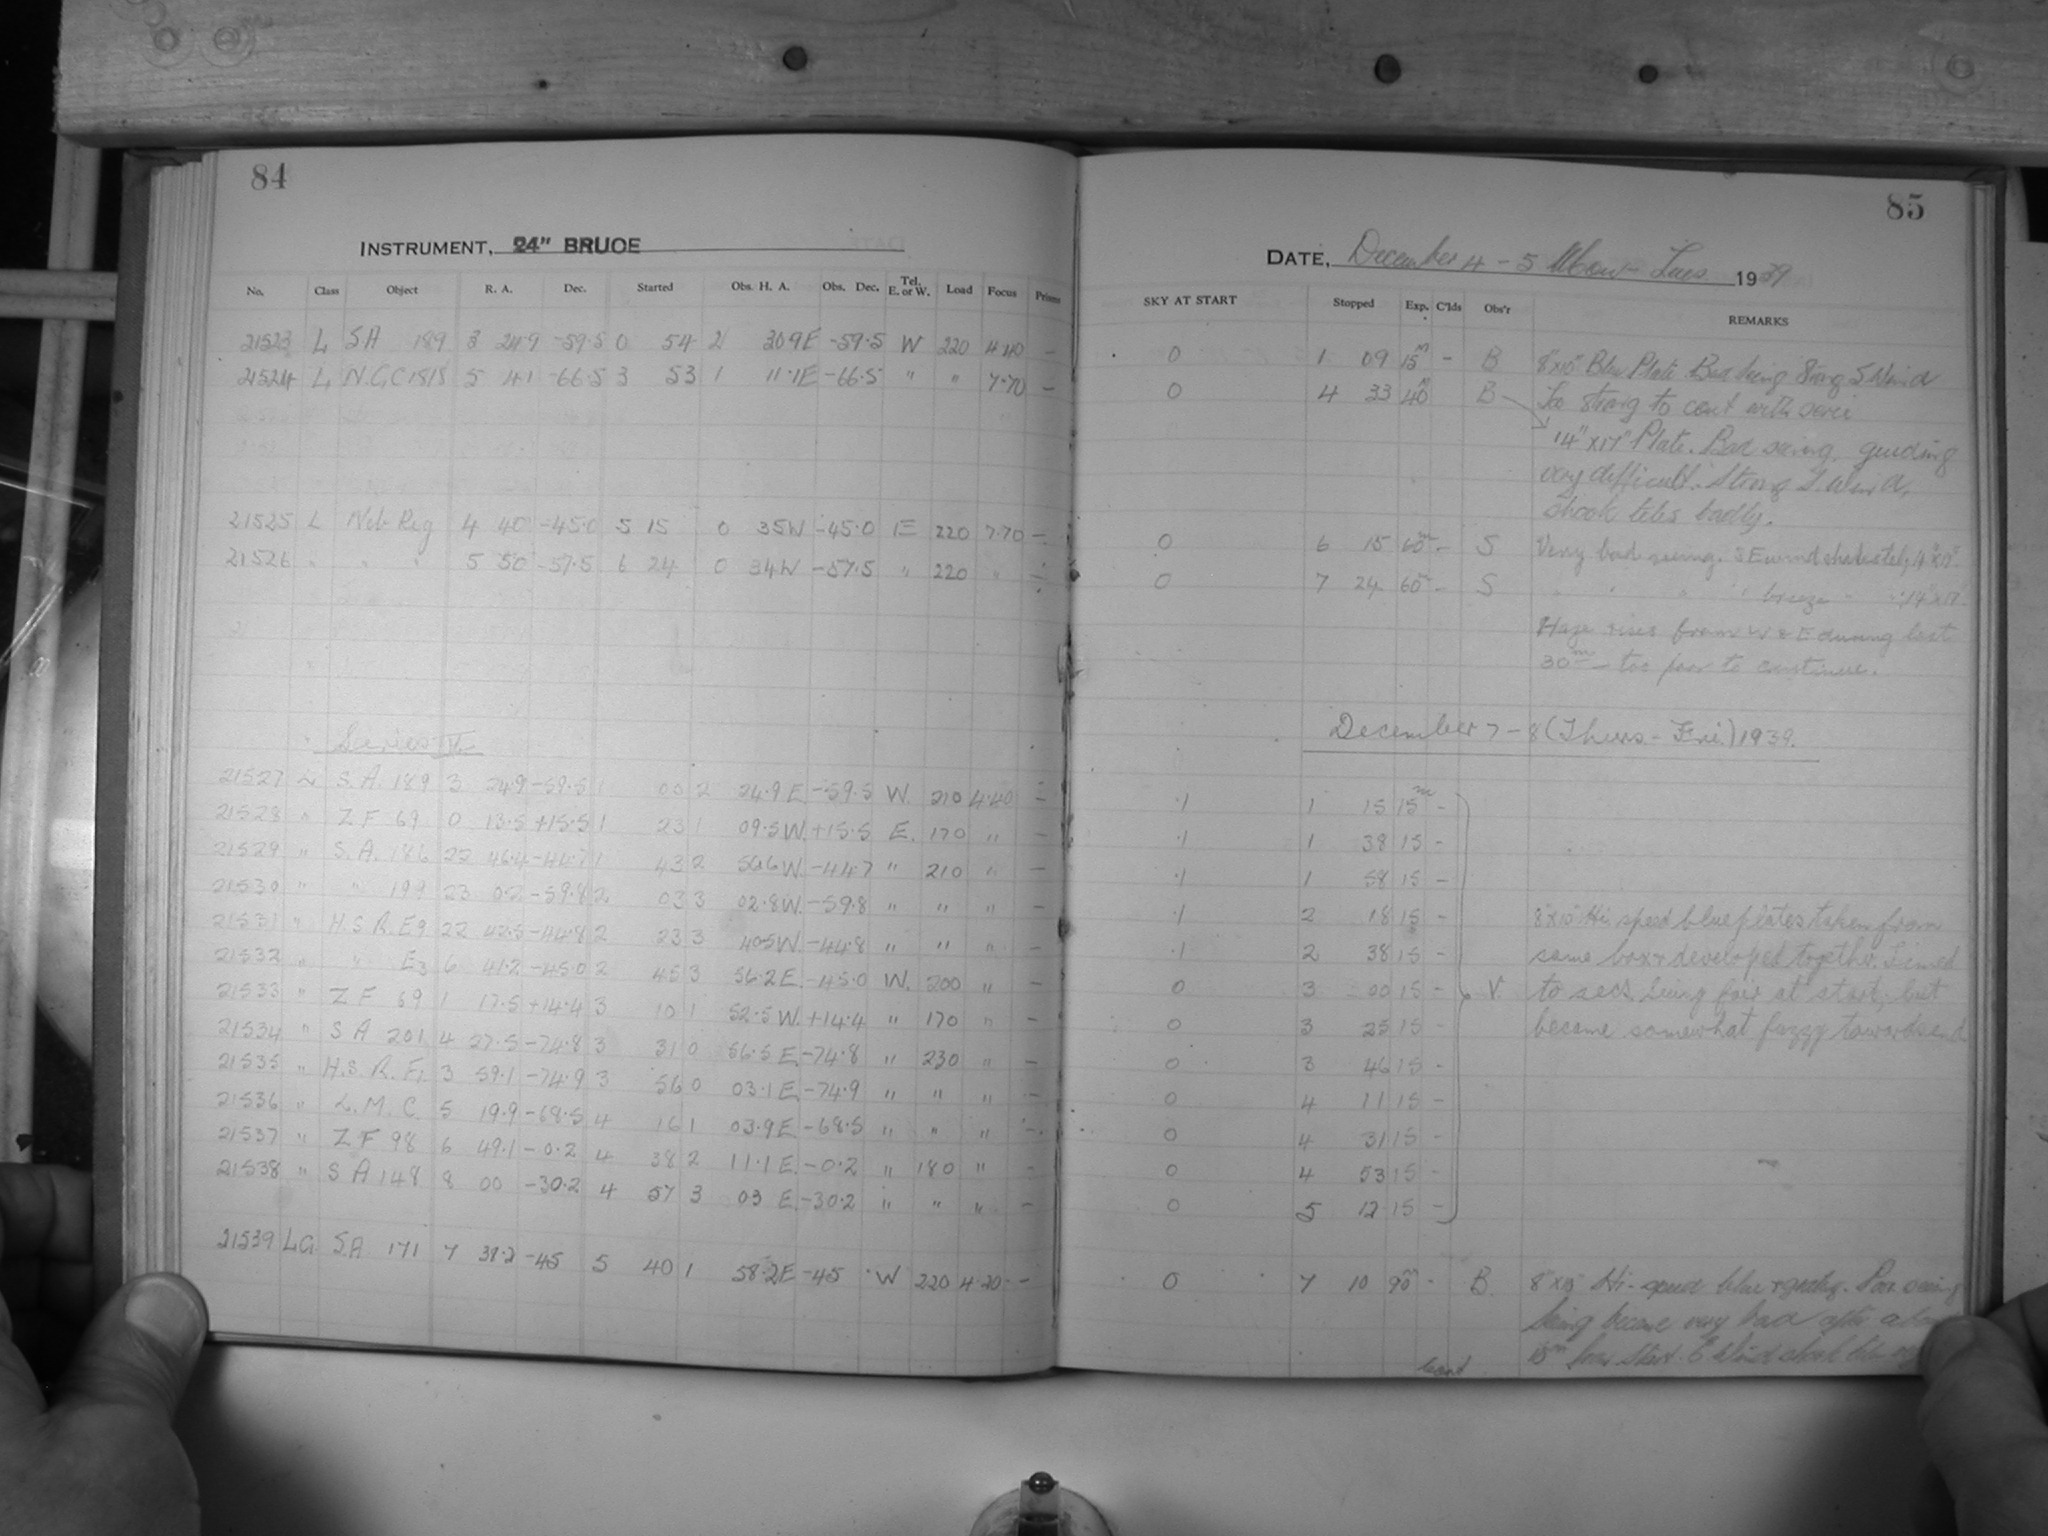 84
INSTRUMENT, 24" BRUCE
No. Class Object R. A. Dec. Started Obs. H. A. Obs. Dec. Tel. E. or W. Load Focus Prisms
21523 L SA 189 3 24.9 -59.5 0 54 2 30.9E -59.5 W 220 4.40 -
21524 L N.G.C 1818 5 41 -66.5 3 53 1 11.1E -66.5 " " 7.70 -
21525 L Neb Reg 4 40 -45.0 5 15 0 35W -45.0 E 220 7.70 -
21526 " " " 5 50 -57.5 6 24 0 34W -57.5 " 220 " -
Series
21527 L S.A. 189 3 24.9 -59.5 1 00 2 24.9 E -59.5 W. 210 4.40 -
21528 " Z F 69 0 13.5 +15.5 1 23 1 09.5W. +15.5 E. 170 " -
21529 " S.A. 186 22 46.4 -44.7 1 43 2 56.6 W. -44.7 " 210 " -
21530 " " 199 23 0.2 -59.8 2 03 3 02.8W. -59.8 " " " -
21531 " H.S.R. E9 22 42.5 -44.8 2 23 3 40.5W. -44.8 " " " -
21532 " " E3 6 41.2 -45.0 2 45 3 56.2E. -45.0 W. 200 " -
21533 " Z F 69 1 17.5 +14.4 3 10 1 52.5 W. +14.4 " 170 " -
21534 " S A 201 4 27.5 -74.8 3 31 0 56.5 E. -74.8 " 230 " -
21535 " H.S.R. F1 3 59.1 -74.9 3 56 0 03.1E -74.9 " " " -
21536 " L.M.C. 5 19.9 -68.5 4 16 1 03.9E -68.5 " " " -
21537 " Z F 98 6 49.1 -0.2 4 38 2 11.1E. -0.2 " 180 " -
21538 " S A 148 8 00 -30.2 4 57 3 03 E. -30.2 " " " -
21539 LG SA 171 7 38.2 -45 5 40 1 58.2E -45 W 220 4.20 -
85
DATE, December 4 - 5 Mon - Tues 1939
SKY AT START Stopped Exp. C'lds Obs'r REMARKS
0 1 09 15m - B 8"x10" Blue Plate Bad seeing Strong S Wind
0 4 33 40m B Too strong to cont with series
14" x 17" Plate. Bad seeing, guiding
very difficult. Strong S. Wind,
shook teles badly.
0 6 15 60m - S Very bad seeing. S E wind shakes tel; 14"x17"
0 7 24 60m - S " " " " breeze " "; 14"x17"
Haze rises from W & E during last
30m - too poor to continue.
December 7 - 8 (Thurs. - Fri.) 1939.
.1 1 15 15m -
.1 1 38 15 -
.1 1 58 15 -
.1 2 18 15 - 8"x10" Hi speed blue plates taken from
.1 2 38 15 - same box & developed together. Timed
0 3 00 15 - V. to secs. being fair at start, but
0 3 25 15 - became somewhat fuzzy towards end
0 3 46 15 -
0 4 11 15 -
0 4 31 15 -
0 4 53 15 -
0 5 12 15 -
0 7 10 90m - B. 8"x10" Hi-speed blue Poor seeing
Seeing became very bad after
15m from start. E Wind shook teles